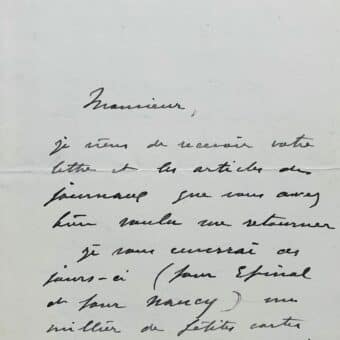 Monsieur,
je viens de recevoir votre
lettre et les articles des
journaux que vous avez
bien voulu me retourner
je vous enverrai ces
jours-ci (pour Epinal
et pour Nancy) un
millier de petites cartes